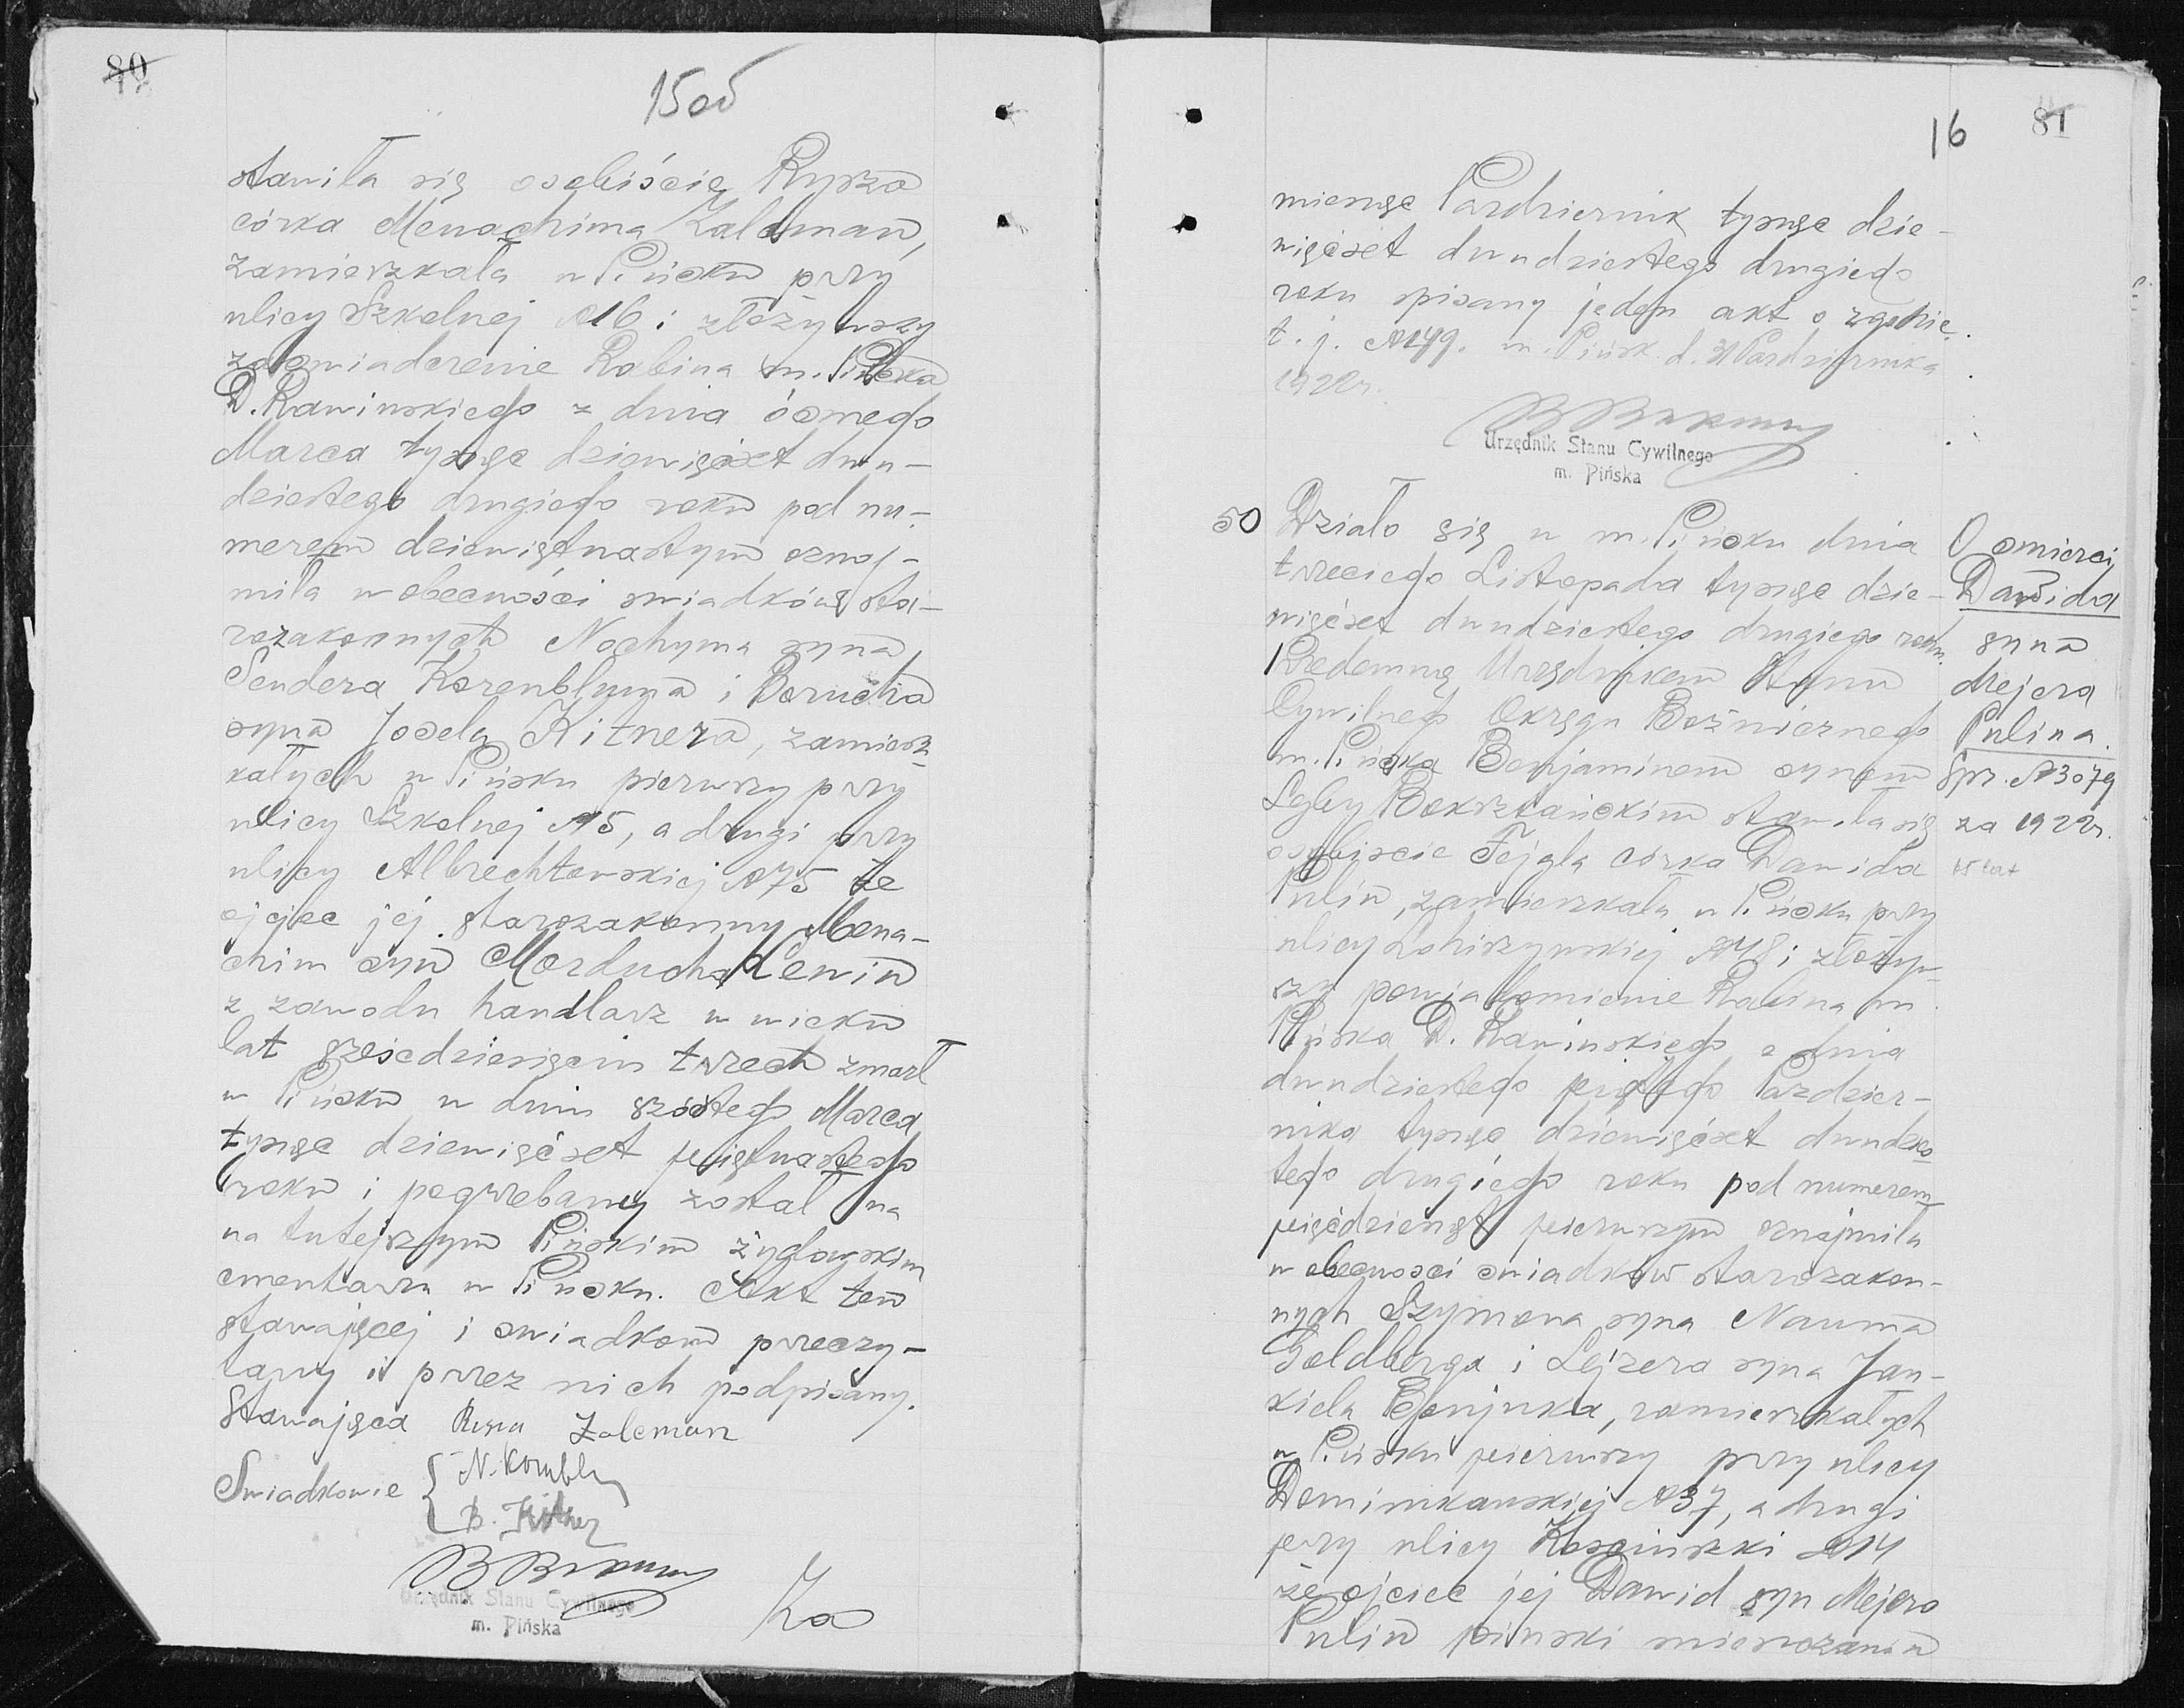 80
15 об
stawiła się osobiście Rysza
córka Menachima Zaleman,
zamieszkała w Pińsku przy
ulicy Szkolnej №6 i złożywszy
zaświadczenie Rabina m. Pińska
D. Rawińskiego z dnia ósmego
Marca tysąc dziewięćset dwu-
dziestego drugiego roku pod nu-
merem dziewiętnastym oznaj-
miła w obecności swiadków sta-
rozakonnych Nochyma syna
Sendera Korenbluma i Borucha
syna Josela Kitnera, zamiesz-
kałych w Pińsku pierwszy przy
ulicy Szkolnej №5, a drugi przy
ulicy Albrechtowskiej №75 że
ojciec jej starozakonny Mena-
chim syn Morducha Lewin
z zawodu handlarz w wieku
lat sześćdziesięciu trzech zmarł
w Pińsku w dniu szóstego Marca
tysąc dziewięćset piętnastego
roku i pogrzebany został na
na tutejszym Pińskim żydowskim
cmentarzu w Pińsku. Akt ten
stawającej i swiadkom przeczy-
tany i przez nich podpisany.
Stawająca Rysza Zaleman
Swiadkowie N. Kornbl
B. Kitner
Urzędnik Stanu Cywilnego
m. Pińska
Za
16
81
miesąc Pazdziernik tysąc dzie-
więćset dwudziestego drugiego
roku spisany jeden akt o zgonie
t. j. №49. m. Pińsk d. 31 Pazdziernika
1922r.
Urzędnik Stanu Cywilnego
m. Pińska
50
Działo się w m. Pińsku dnia
trzeciego Listopada tysąc dzie-
więćset dwudziestego drugiego roku.
Przedemną Urzędnikem Stanu
Cywilnego Okręgu Bożnicznego
m. Pińska Benjaminem synem
Lejby Boksztańskim stawiła się
osobiscie Fejgla córka Dawida
Pulin, zamieszkała w Pińsku przy
ulicy Lohiszynskiej №48 i złożyw-
szy powiadomienie Rabina m.
Pińska D. Rawińskiego z dnia
dwudziestego piątego Pazdzier-
nika tysąc dziewięćset dwudzies-
tego drugiego roku pod numerem
pięćdziesąt pierwszym oznajmiła
w obecnosci swiadków starozakon-
nych Szymona syna Nauma
Goldberga i Lejzera syna Jan-
kiela Gonjuka, zamieszkałych
w Pińsku pierwszy przy ulicy
Dominikanskiej №37, a drugi
przy ulicy Kosciuszki №14
że ojciec jej Dawid syn Mejera
Pulin pinski mieszczanin
O smierci
Dawida
syna
Mejera
Pulina.
Spr. №3079
za 1922r.
lat